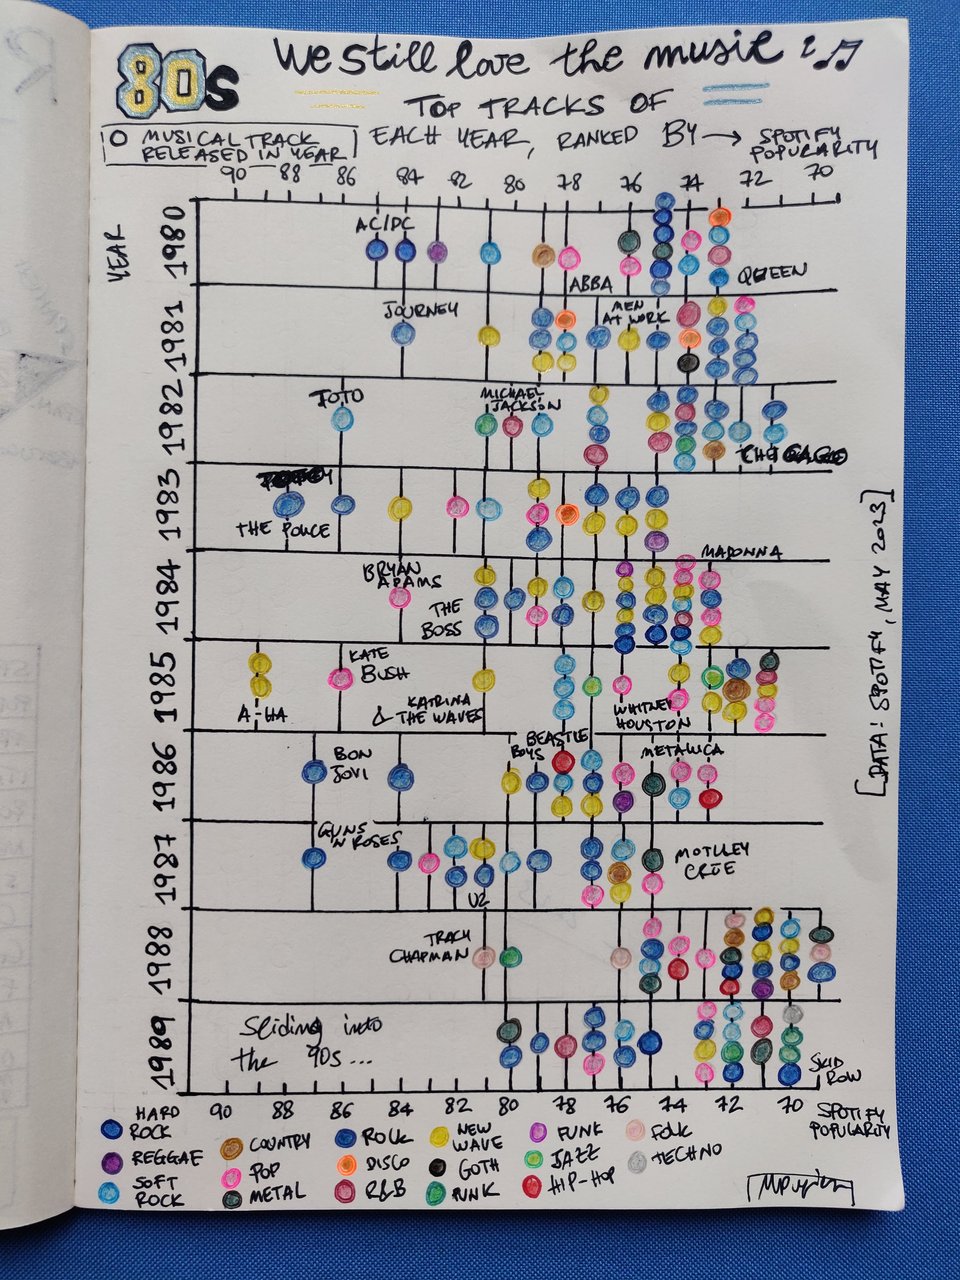 80s
We still love the music
TOP TRACKS OF
EACH YEAR, RANKED BY → SPOTIFY POPULARITY
O MUSICAL TRACK
RELEASED IN YEAR
90 88 86 84 82 80 78 76 74 72 70
YEAR
1980
AC/DC
ABBA
QUEEN
1981
JOURNEY
MEN
AT WORK
1982
TOTO
MICHAEL
JACKSON
CHICAGO
1983
THE POLICE
1984
BRYAN
ADAMS
THE
BOSS
MADONNA
1985
A-HA
KATE
BUSH
KATRINA
& THE WAVES
WHITNEY
HOUSTON
1986
BON
JOVI
BEASTIE
BOYS
METALLICA
1987
GUNS
'N ROSES
U2
MOTLLEY
CRÜE
1988
TRACY
CHAPMAN
1989
Sliding into
the 90s...
SKID
ROW
[DATA: SPOTIFY, MAY 2023]
90 88 86 84 82 80 78 76 74 72 70 SPOTIFY
POPULARITY
HARD
ROCK
REGGAE
SOFT
ROCK
COUNTRY
POP
METAL
ROCK
DISCO
R&B
NEW
WAVE
GOTH
PUNK
FUNK
JAZZ
HIP-HOP
FOLK
TECHNO